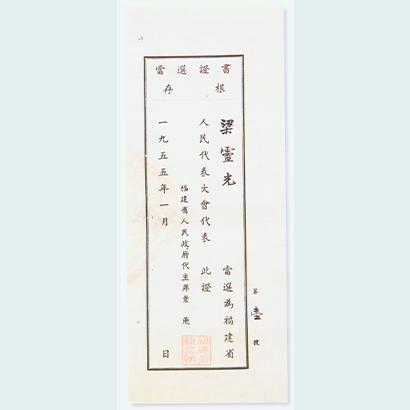 當選證書
存根
第壹號
梁靈光 當選為福建省
人民代表大會代表 此證
福建省人民政府代主席葉飛
一九五五年一月 日